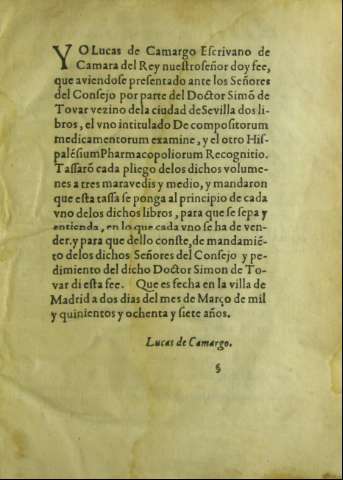 YO Lucas de Camargo Escrivano de
Camara del Rey nuestro señor doy fee,
que aviendose presentado ante los Señores
del Consejo por parte del Doctor Simõ de
Tovar vezino dela ciudad de Sevilla dos li-
bros, el vno intitulado De compositorum
medicamentorum examine, y el otro His-
palẽsium Pharmacopoliorum Recognitio.
Tassarõ cada pliego delos dichos volume-
nes a tres maravedis y medio, y mandaron
que esta tassa se ponga al principio de cada
vno delos dichos libros, para que se sepa y
entienda, en lo que cada vno se ha de ven-
der, y para que dello conste, de mandamiẽ-
to delos dichos Señores del Consejo y pe-
dimiento del dicho Doctor Simon de To-
var di esta fee. Que es fecha en la villa de
Madrid a dos dias del mes de Março de mil
y quinientos y ochenta y siete años.
Lucas de Camargo.
§